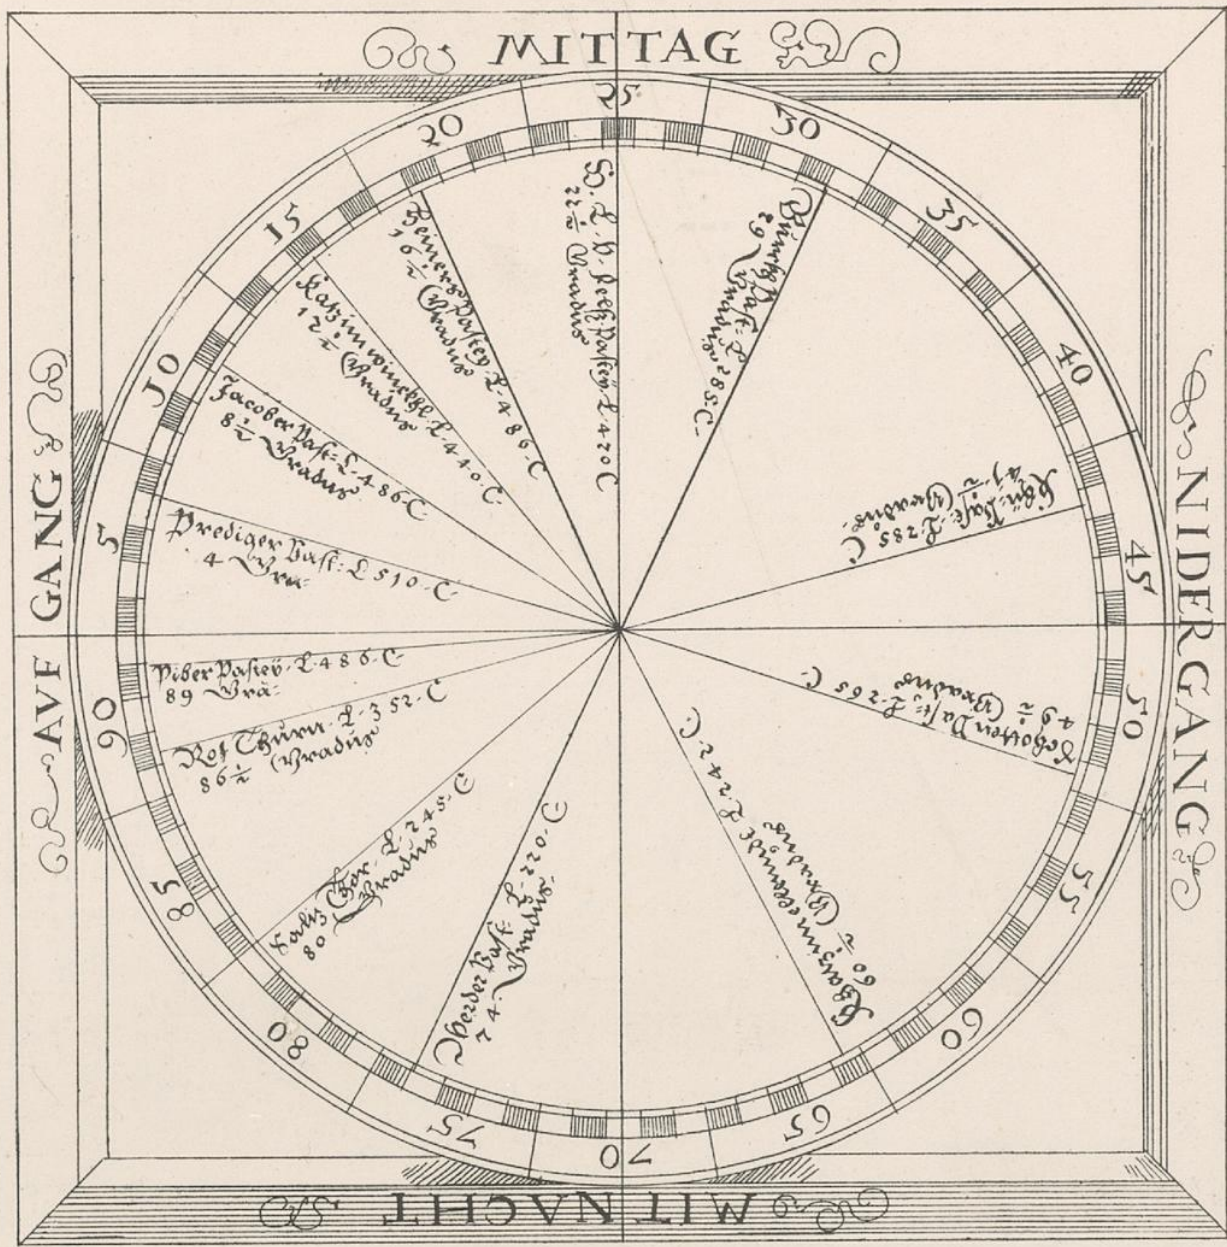 MITTAG
NIDERGANG
MITNACHT
AVF GANG
5
10
15
20
25
30
35
40
45
50
55
60
65
70
75
80
85
90
Prediger Past: L 510. C.
4 Gra:
Jacober Past: L. 486. C.
8 1/2 Gradus
Katzinwinckhl. L. 440. C.
12 1/2 Gradus
Pastey. L. 486. C
16 1/2 Gradus
Pastey. L 420 C
22 1/2 Gradus
Past: L 285. C.
29 Gradus
Past: L 285 C.
Gradus
Schotten Past: L. 265 C.
49 1/2 Gradus
L. 242. C.
60 1/2 Gradus
Werder Past: L. 220. C
74. Gradus.
Saltz Thor. L. 245. C
80 Gradus
Rot Thurn. L. 352. C
86 1/2 Gradus
Piber Pasteÿ. L. 486. C
89 Gra: